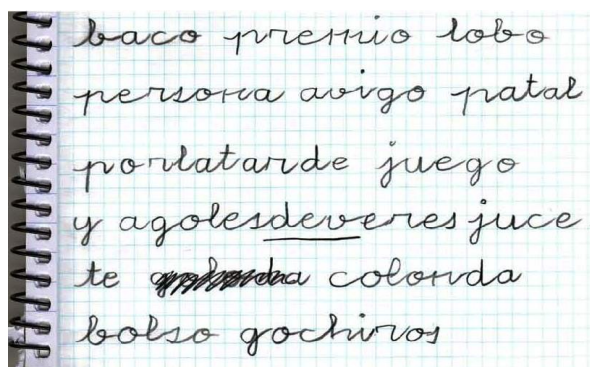 baco premio lobo
persona avigo patal
porlatarde juego
y agolesdeveresjuce
te colonda
bolso gochiros